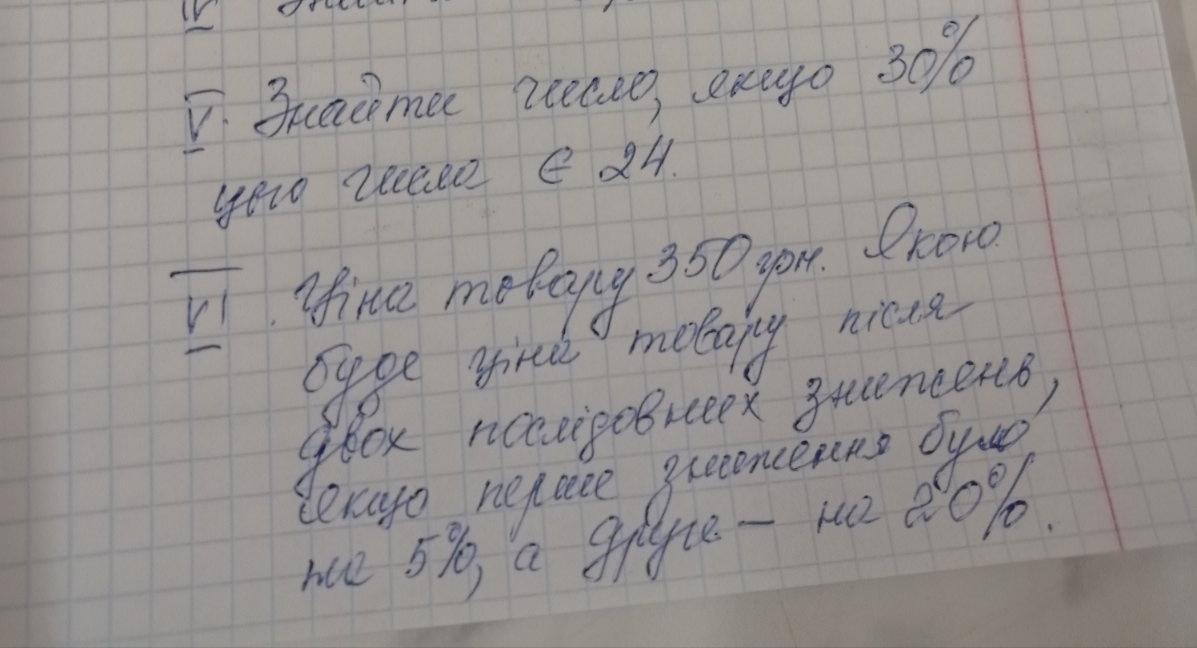 IV Знайти
V. Знайти число, якщо 30%
цього числа є 24.
VI. Ціна товару 350 грн. Якою
буде ціна товару після
двох послідовних знижень,
якщо перше зниження було
на 5%, а друге - на 20%.